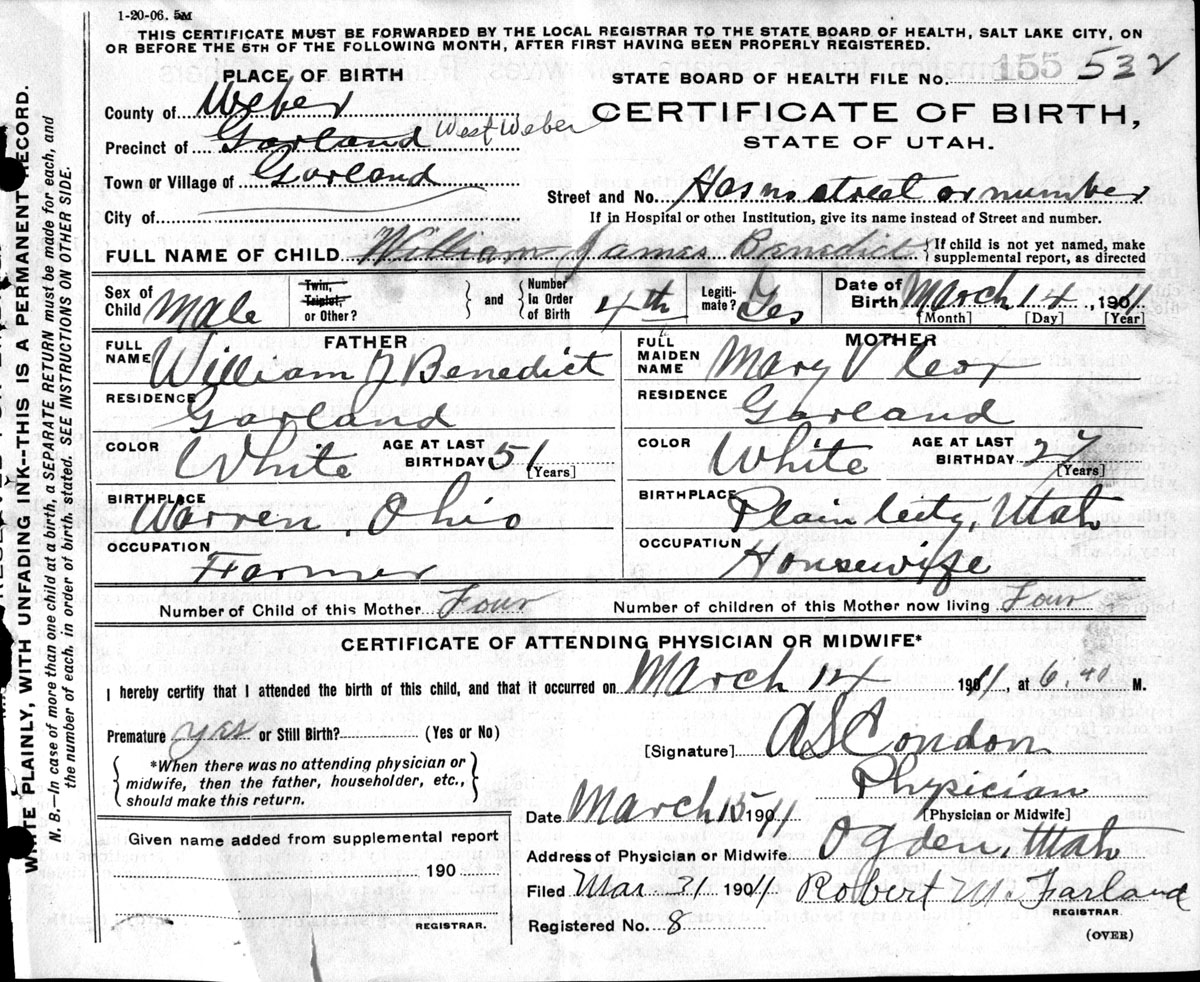 1-20-06. 5M
THIS CERTIFICATE MUST BE FORWARDED BY THE LOCAL REGISTRAR TO THE STATE BOARD OF HEALTH, SALT LAKE CITY, ON
OR BEFORE THE 5TH OF THE FOLLOWING MONTH, AFTER FIRST HAVING BEEN PROPERLY REGISTERED.
PLACE OF BIRTH
STATE BOARD OF HEALTH FILE No. 155 532
County of Weber
CERTIFICATE OF BIRTH,
Precinct of Garland West Weber
STATE OF UTAH.
Town or Village of Garland
Street and No. Has no street or number
City of
If in Hospital or other Institution, give its name instead of Street and number.
FULL NAME OF CHILD William James Benedict { If child is not yet named, make
supplemental report, as directed
Sex of Child Male
Twin, Triplet, or Other?
and Number In Order of Birth 4th
Legiti-mate? Yes
Date of Birth March 14, 1911
[Month] [Day] [Year]
FATHER
MOTHER
FULL NAME William J Benedict
FULL MAIDEN NAME Mary V Cox
RESIDENCE Garland
RESIDENCE Garland
COLOR White AGE AT LAST BIRTHDAY 51 [Years]
COLOR White AGE AT LAST BIRTHDAY 27 [Years]
BIRTHPLACE Warren, Ohio
BIRTHPLACE Plain City, Utah
OCCUPATION Farmer
OCCUPATION Housewife
Number of Child of this Mother Four
Number of children of this Mother now living Four
CERTIFICATE OF ATTENDING PHYSICIAN OR MIDWIFE*
I hereby certify that I attended the birth of this child, and that it occurred on March 14 1911, at 6.40 M.
Premature yes or Still Birth? (Yes or No)
[Signature] A S Condon
*When there was no attending physician or
midwife, then the father, householder, etc.,
should make this return.
Physician
[Physician or Midwife]
Date March 15 1911
Given name added from supplemental report
190
REGISTRAR.
Address of Physician or Midwife Ogden, Utah
Filed Mar 31 1911 Robert McFarland
REGISTRAR.
Registered No. 8
(OVER)
WRITE PLAINLY, WITH UNFADING INK--THIS IS A PERMANENT RECORD.
N. B.--In case of more than one child at a birth, a SEPARATE RETURN must be made for each, and
the number of each, in order of birth, stated. SEE INSTRUCTIONS ON OTHER SIDE.